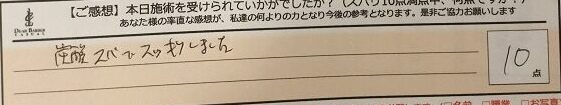 【ご感想】本日施術を受けられていかがでしたか?(ズバリ10点満点中、何点ですか?)
あなた様の率直な感想が、私達の何よりの力となり今後の参考となります。是非ご協力お願いします
DEAR BARBER
炭酸スパでスッキリしました
10点
お写真